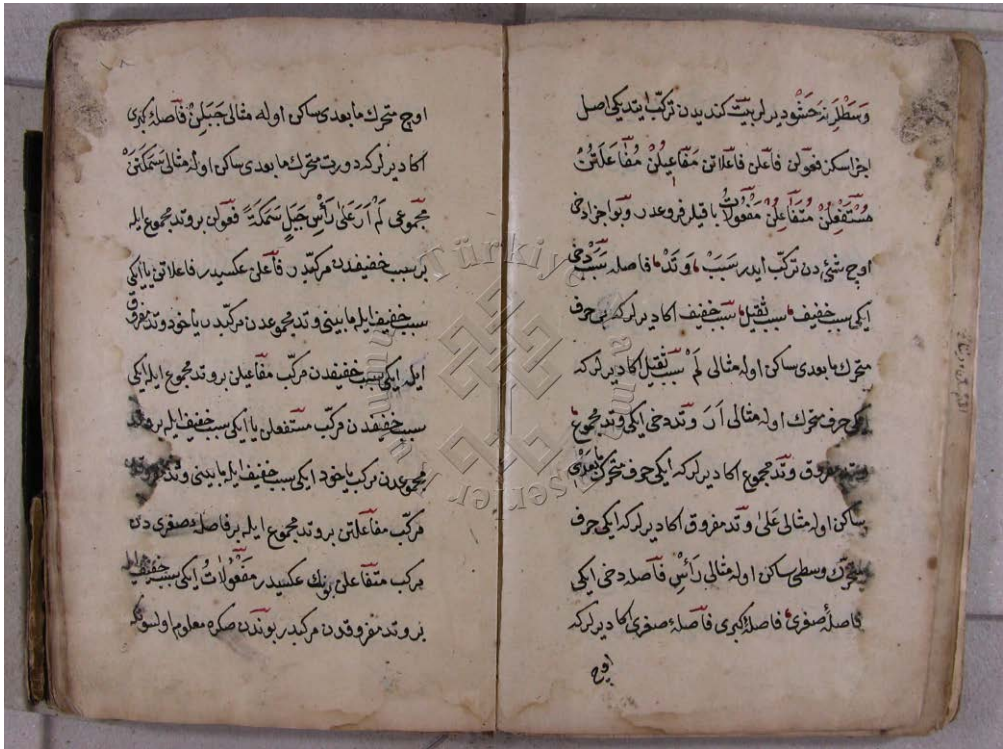 وَسَطْلَرِنَه حَشْو ديرلر بيت كنديدن تركّب ايتديكى اصل
اجزا سكز فعولن فاعلن فاعلاتن مَفَاعِيلُنْ مُفَاعَلَتُنْ
مُسْتَفْعِلُنْ مُتَفَاعِلُنْ مَفْعُولَاتُ باقيلر فروعدر وبو اجزا دخى
اوچ شئ دن تركّب ايدر سَبَبْ، وَتَدْ، فاصله سَبَب دخى
ايكى سبب خفيف، سبب ثقيل، سبب خفيف اكا ديرلر كه بر حرف
متحرك ما بعدى ساكن اوله مثالى لَمْ سبب ثقيل اكا ديرلر كه
ايكى حرف متحرك اوله مثالى اَرَ وتد دخى ايكى وتد مجموع،
وتد مفروق وتد مجموع اكا ديرلر كه ايكى حرف متحرك ما بعدى
ساكن اوله مثالى عَلىٰ وتد مفروق اكا ديرلر كه ايكى حرف
متحرك وسطى ساكن اوله مثالى رَأْسِ فاصله دخى ايكى
فاصلهٔ صغرى، فاصلهٔ كبرى فاصلهٔ صغرى اكا ديرلر كه
اوچ
اوچ متحرك ما بعدى ساكن اوله مثالى جَبَلِنْ فاصلهٔ كبرى
اكا ديرلر كه دورت متحرك ما بعدى ساكن اوله مثالى سَمَكَتَنْ
مجموعى لَمْ اَرَ عَلىٰ رَأْسِ جَبَلٍ سَمَكَةً فعولن بر وتد مجموع ايله
بر سبب خفيفدن مركبدر فاعلن عكسيدر فاعلاتن يا ايكى
سبب خفيف ايله مابينى وتد مجموعدن مركبدر ياخود وتد مفروق
ايله ايكى سبب خفيفدن مركّب مفاعيلن بر وتد مجموع ايله ايكى
سبب خفيفدن مركّب مستفعلن يا ايكى سبب خفيف ايله بر وتد
مجموعدن مركب ياخود ايكى سبب خفيف ايله مابينى وتد مفروقدن
مركّب مفاعلتن بر وتد مجموع ايله بر فاصلهٔ صغرى دن
مركب متفاعلن بونك عكسيدر مَفْعُولَاتُ ايكى سبب خفيف ايله
بر وتد مفروقدن مركبدر بوندن صكره معلوم اولسونكه
Türkiye